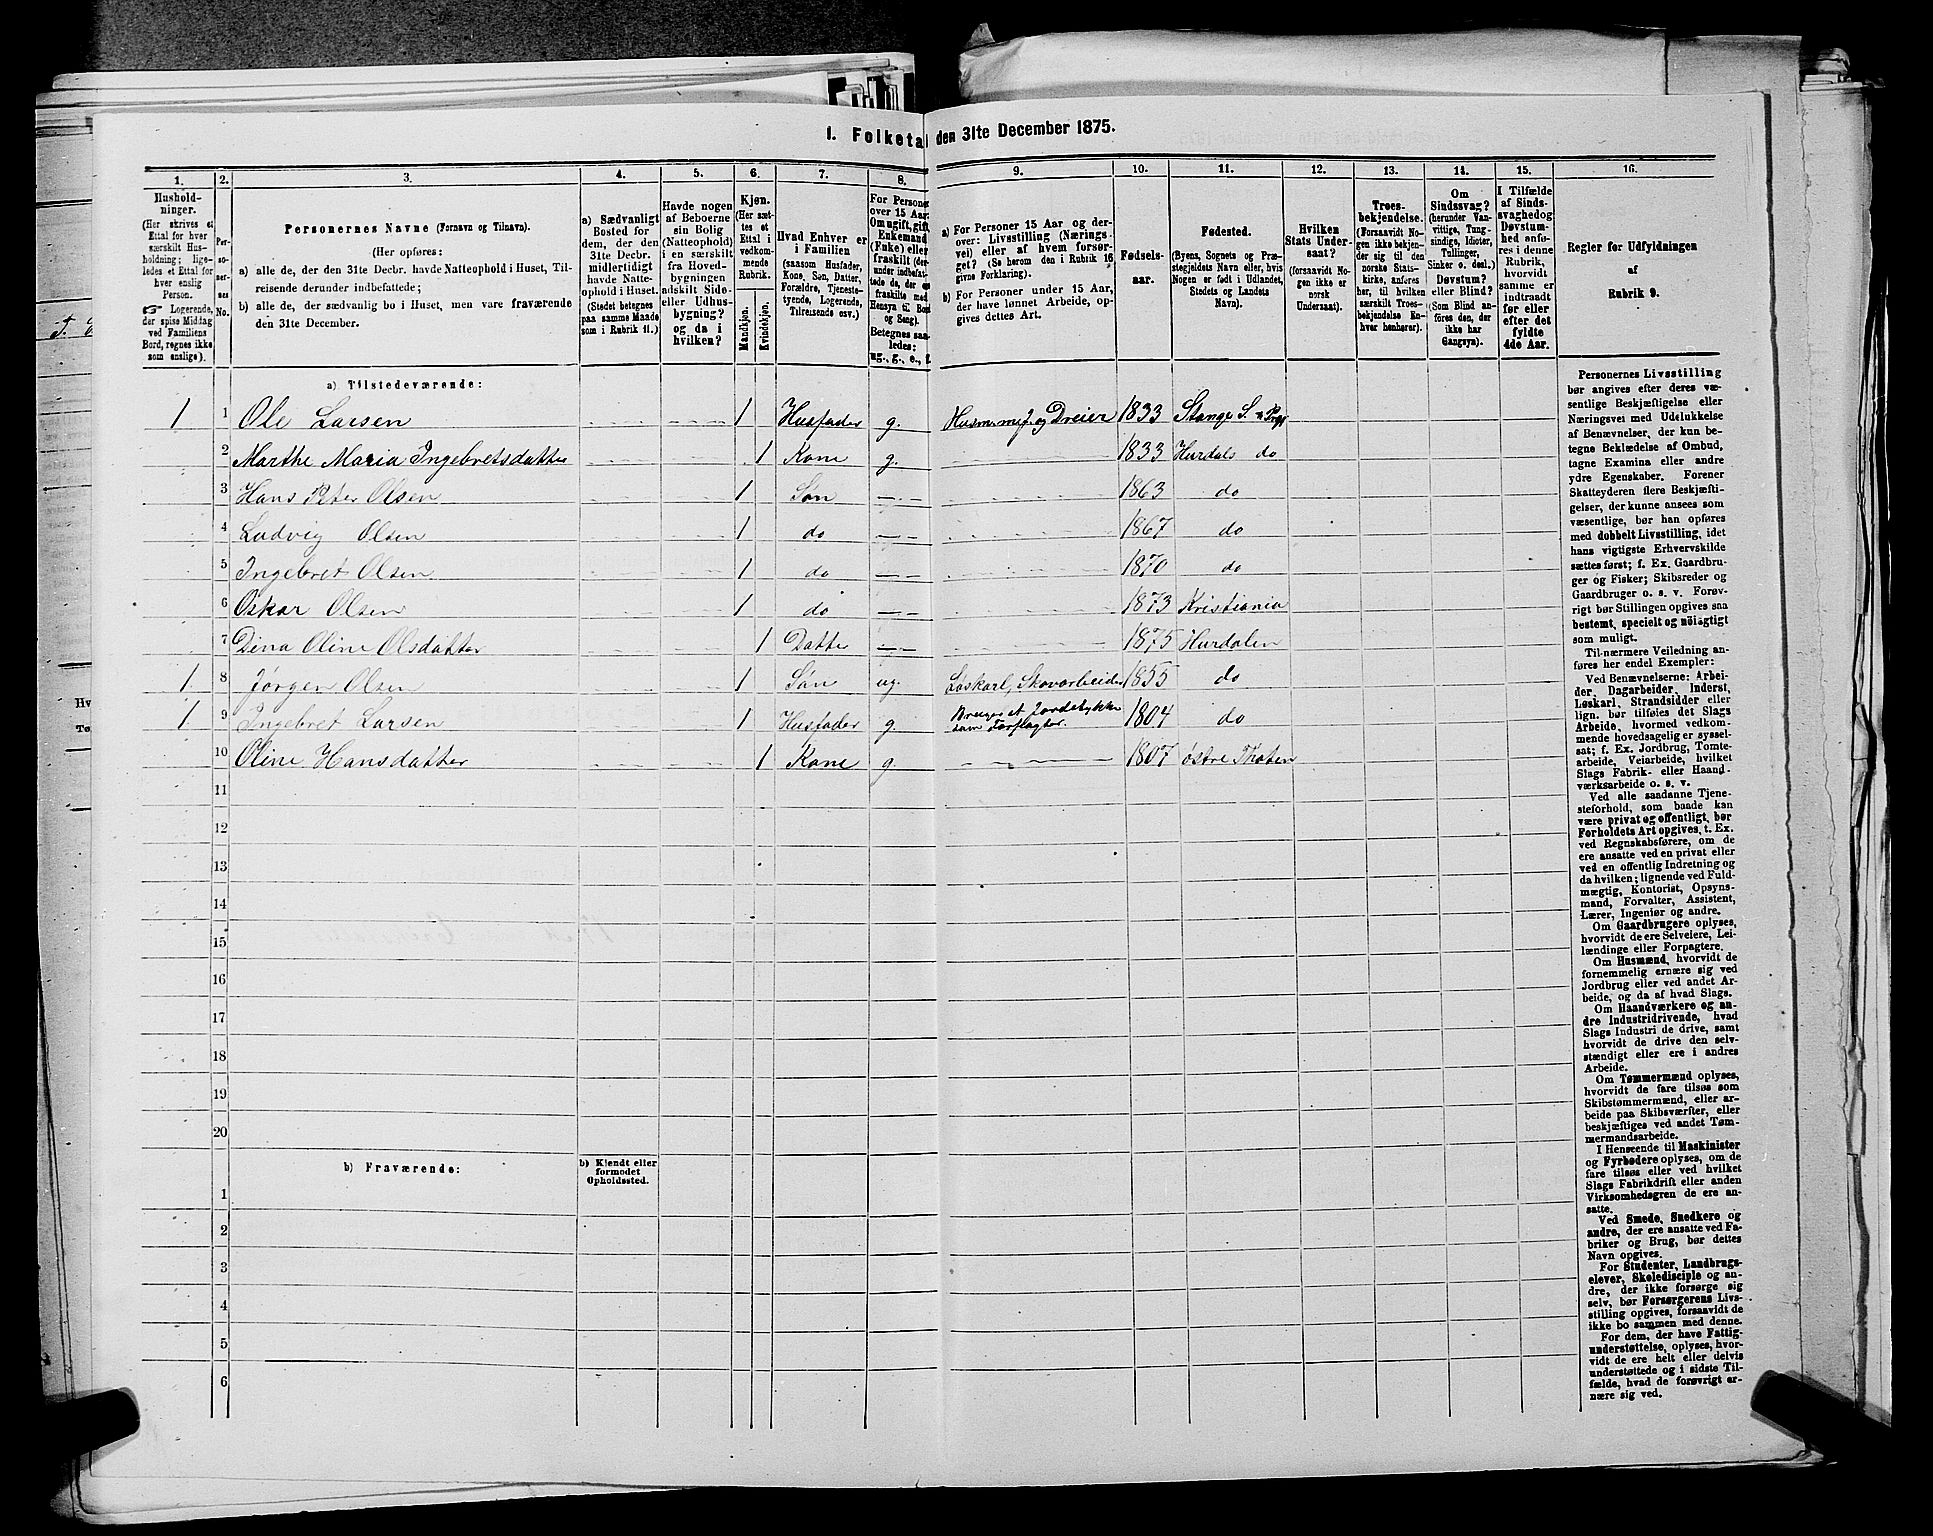 I. Folketal den 31te December 1875.
1. 2. 3. 4. 5. 6. 7. 8. 9. 10. 11. 12. 13. 14. 15. 16.
Hushold-
ninger.
(Her skrives et
Ettal for hver
særskilt Hus-
holdning; lige-
ledes et Ettal for
hver enslig
Person.
☞ Logerende,
der spise Middag
ved Familiens
Bord, regnes ikke
som enslige).
Per-
so-
ner-
nes
No.
Personernes Navne (Fornavn og Tilnavn).
(Her opføres:
a) alle de, der den 31te Decbr. havde Natteophold i Huset, Til-
reisende derunder indbefattede;
b) alle de, der sædvanlig bo i Huset, men vare fraværende
den 31te December.
a) Sædvanligt
Bosted for
dem, der den
31te Decbr.
midlertidigt
havde Natte-
ophold i Huset.
(Stedet betegnes
paa samme Maade
som i Rubrik 11.)
Havde nogen
af Beboerne
sin Bolig
(Natteophold)
i en særskilt
fra Hoved-
bygningen
adskilt Side-
eller Udhus-
bygning?
og da i
hvilken?
Kjøn.
(Her sæt-
tes et
Ettal i
vedkom-
mende
Rubrik.
Mandkjøn.
Kvindekjøn.
Hvad Enhver er
i Familien
(saasom Husfader,
Kone, Søn, Datter,
Forældre, Tjeneste-
tyende, Logerende,
Tilreisende osv.)
For Personer
over 15 Aar:
Om ugift, gift,
Enkemand
(Enke) eller
fraskilt (der-
under indbefat-
tede de, der ere
fraskilte med
Hensyn til Bord
og Seng).
Betegnes saa-
ledes:
ug., g., e., f.
a) For Personer 15 Aar og der-
over: Livsstilling (Nærings-
vei) eller af hvem forsør-
get? (Se herom den i Rubrik 16
givne Forklaring).
b) For Personer under 15 Aar,
der have lønnet Arbeide, op-
gives dettes Art.
Fødsels-
aar.
Fødested.
(Byens, Sognets og Præ-
stegjeldets Navn eller, hvis
Nogen er født i Udlandet,
Stedets og Landets
Navn).
Hvilken
Stats Under-
saat?
(forsaavidt No-
gen ikke er
norsk
Undersaat).
Troes-
bekjendelse.
(Forsaavidt No-
gen ikke bekjen-
der sig til den
norske Stats-
kirke, anføres
her, til hvilken
særskilt Troes-
bekjendelse En-
hver henhører).
Om
Sindssvag?
(herunder Van-
vittige, Tung-
sindige, Idioter,
Tullinger,
Sinker o. desl.)
Døvstum?
eller Blind?
(Som Blind an-
føres den, der
ikke har
Gangsyn).
I Tilfælde
af Sinds-
svaghed og
Døvstum-
hed anfø-
res i denne
Rubrik,
hvorvidt
samme er
indtraadt
før eller
efter det
fyldte
4de Aar.
Regler for Udfyldningen
af
Rubrik 9.
a) Tilstedeværende:
1 1 Ole Larsen 1 Husfader g. Husm. m. j. og Dreier 1833 Stange S. &
2 Marthe Maria Ingebretsdatter 1 Kone g. 1833 Hurdals do
3 Hans Peter Olsen 1 Søn 1863 do
4 Ludvig Olsen 1 do 1867 do
5 Ingebret Olsen 1 do 1870 do
6 Oskar Olsen 1 do 1873 Kristiania
7 Dina Oline Olsdatter 1 Datter 1875 Hurdalen
1 8 Jørgen Olsen 1 Søn ug. Løskarl, Skovarbeider 1855 do
1 9 Ingebret Larsen 1 Husfader g. Bruger et Jordstykke
som Forpagter. 1804 do
10 Oline Hansdatter 1 Kone g. 1807 østre Thoten
11
12
13
14
15
16
17
18
19
20
b) Fraværende:
b) Kjendt eller
formodet
Opholdssted.
1
2
3
4
5
6
Personernes Livsstilling
bør angives efter deres væ-
sentlige Beskjæftigelse eller
Næringsvei med Udelukkelse
af Benævnelser, der kun be-
tegne Beklædelse af Ombud,
tagne Examina eller andre
ydre Egenskaber. Forener
Skatteyderen flere Beskjæfti-
gelser, der kunne ansees som
væsentlige, bør han opføres
med dobbelt Livsstilling, idet
hans vigtigste Erhvervskilde
sættes først; f. Ex. Gaardbru-
ger og Fisker; Skibsreder og
Gaardbruger o. s. v. Forøv-
rigt bør Stillingen opgives saa
bestemt, specielt og nøiagtigt
som muligt.
Til nærmere Veiledning an-
føres her endel Exempler:
Ved Benævnelserne: Arbei-
der, Dagarbeider, Inderst,
Løskarl, Strandsidder eller
lign. bør tilføies det Slags
Arbeide, hvormed vedkom-
mende hovedsagelig er syssel-
sat; f. Ex. Jordbrug, Tomte-
arbeide, Veiarbeide, hvilket
Slags Fabrik- eller Haand-
værksarbeide o. s. v.
Ved alle saadanne Tjene-
steforhold, som baade kan
være privat og offentligt, bør
Forholdets Art opgives, t. Ex.
ved Regnskabsførere, om de
ere ansatte ved en privat eller
ved en offentlig Indretning og
da hvilken; lignende ved Fuld-
mægtig, Kontorist, Opsyns-
mand, Forvalter, Assistent,
Lærer, Ingeniør og andre.
Om Gaardbrugere oplyses,
hvorvidt de ere Selveiere, Lei-
lændinge eller Forpagtere.
Om Husmænd, hvorvidt de
fornemmelig ernære sig ved
Jordbrug eller ved andet Ar-
beide, og da af hvad Slags.
Om Haandværkere og an-
dre Industridrivende, hvad
Slags Industri de drive, samt
hvorvidt de drive den selv-
stændigt eller ere i andres
Arbeide.
Om Tømmermænd oplyses,
hvorvidt de fare tilsøs som
Skibstømmermænd, eller ar-
beide paa Skibsværfter, eller
beskjæftiges ved andet Tøm-
mermandsarbeide.
I Henseende til Maskinister
og Fyrbødere oplyses, om de
fare tilsøs eller ved hvilket
Slags Fabrikdrift eller anden
Virksomhedsgren de ere an-
satte.
Ved Smede, Snedkere og
andre, der ere ansatte ved Fa-
briker og Brug, bør dettes
Navn opgives.
For Studenter, Landbrugs-
elever, Skoledisciple og an-
dre, der ikke forsørge sig
selv, bør Forsørgerens Livs-
stilling opgives, forsaavidt de
ikke bo sammen med denne.
For dem, der have Fattig-
understøttelse, oplyses, hvor-
vidt de ere helt eller delvis
understøttede og i sidste Til-
fælde, hvad de forøvrigt er-
nære sig ved.